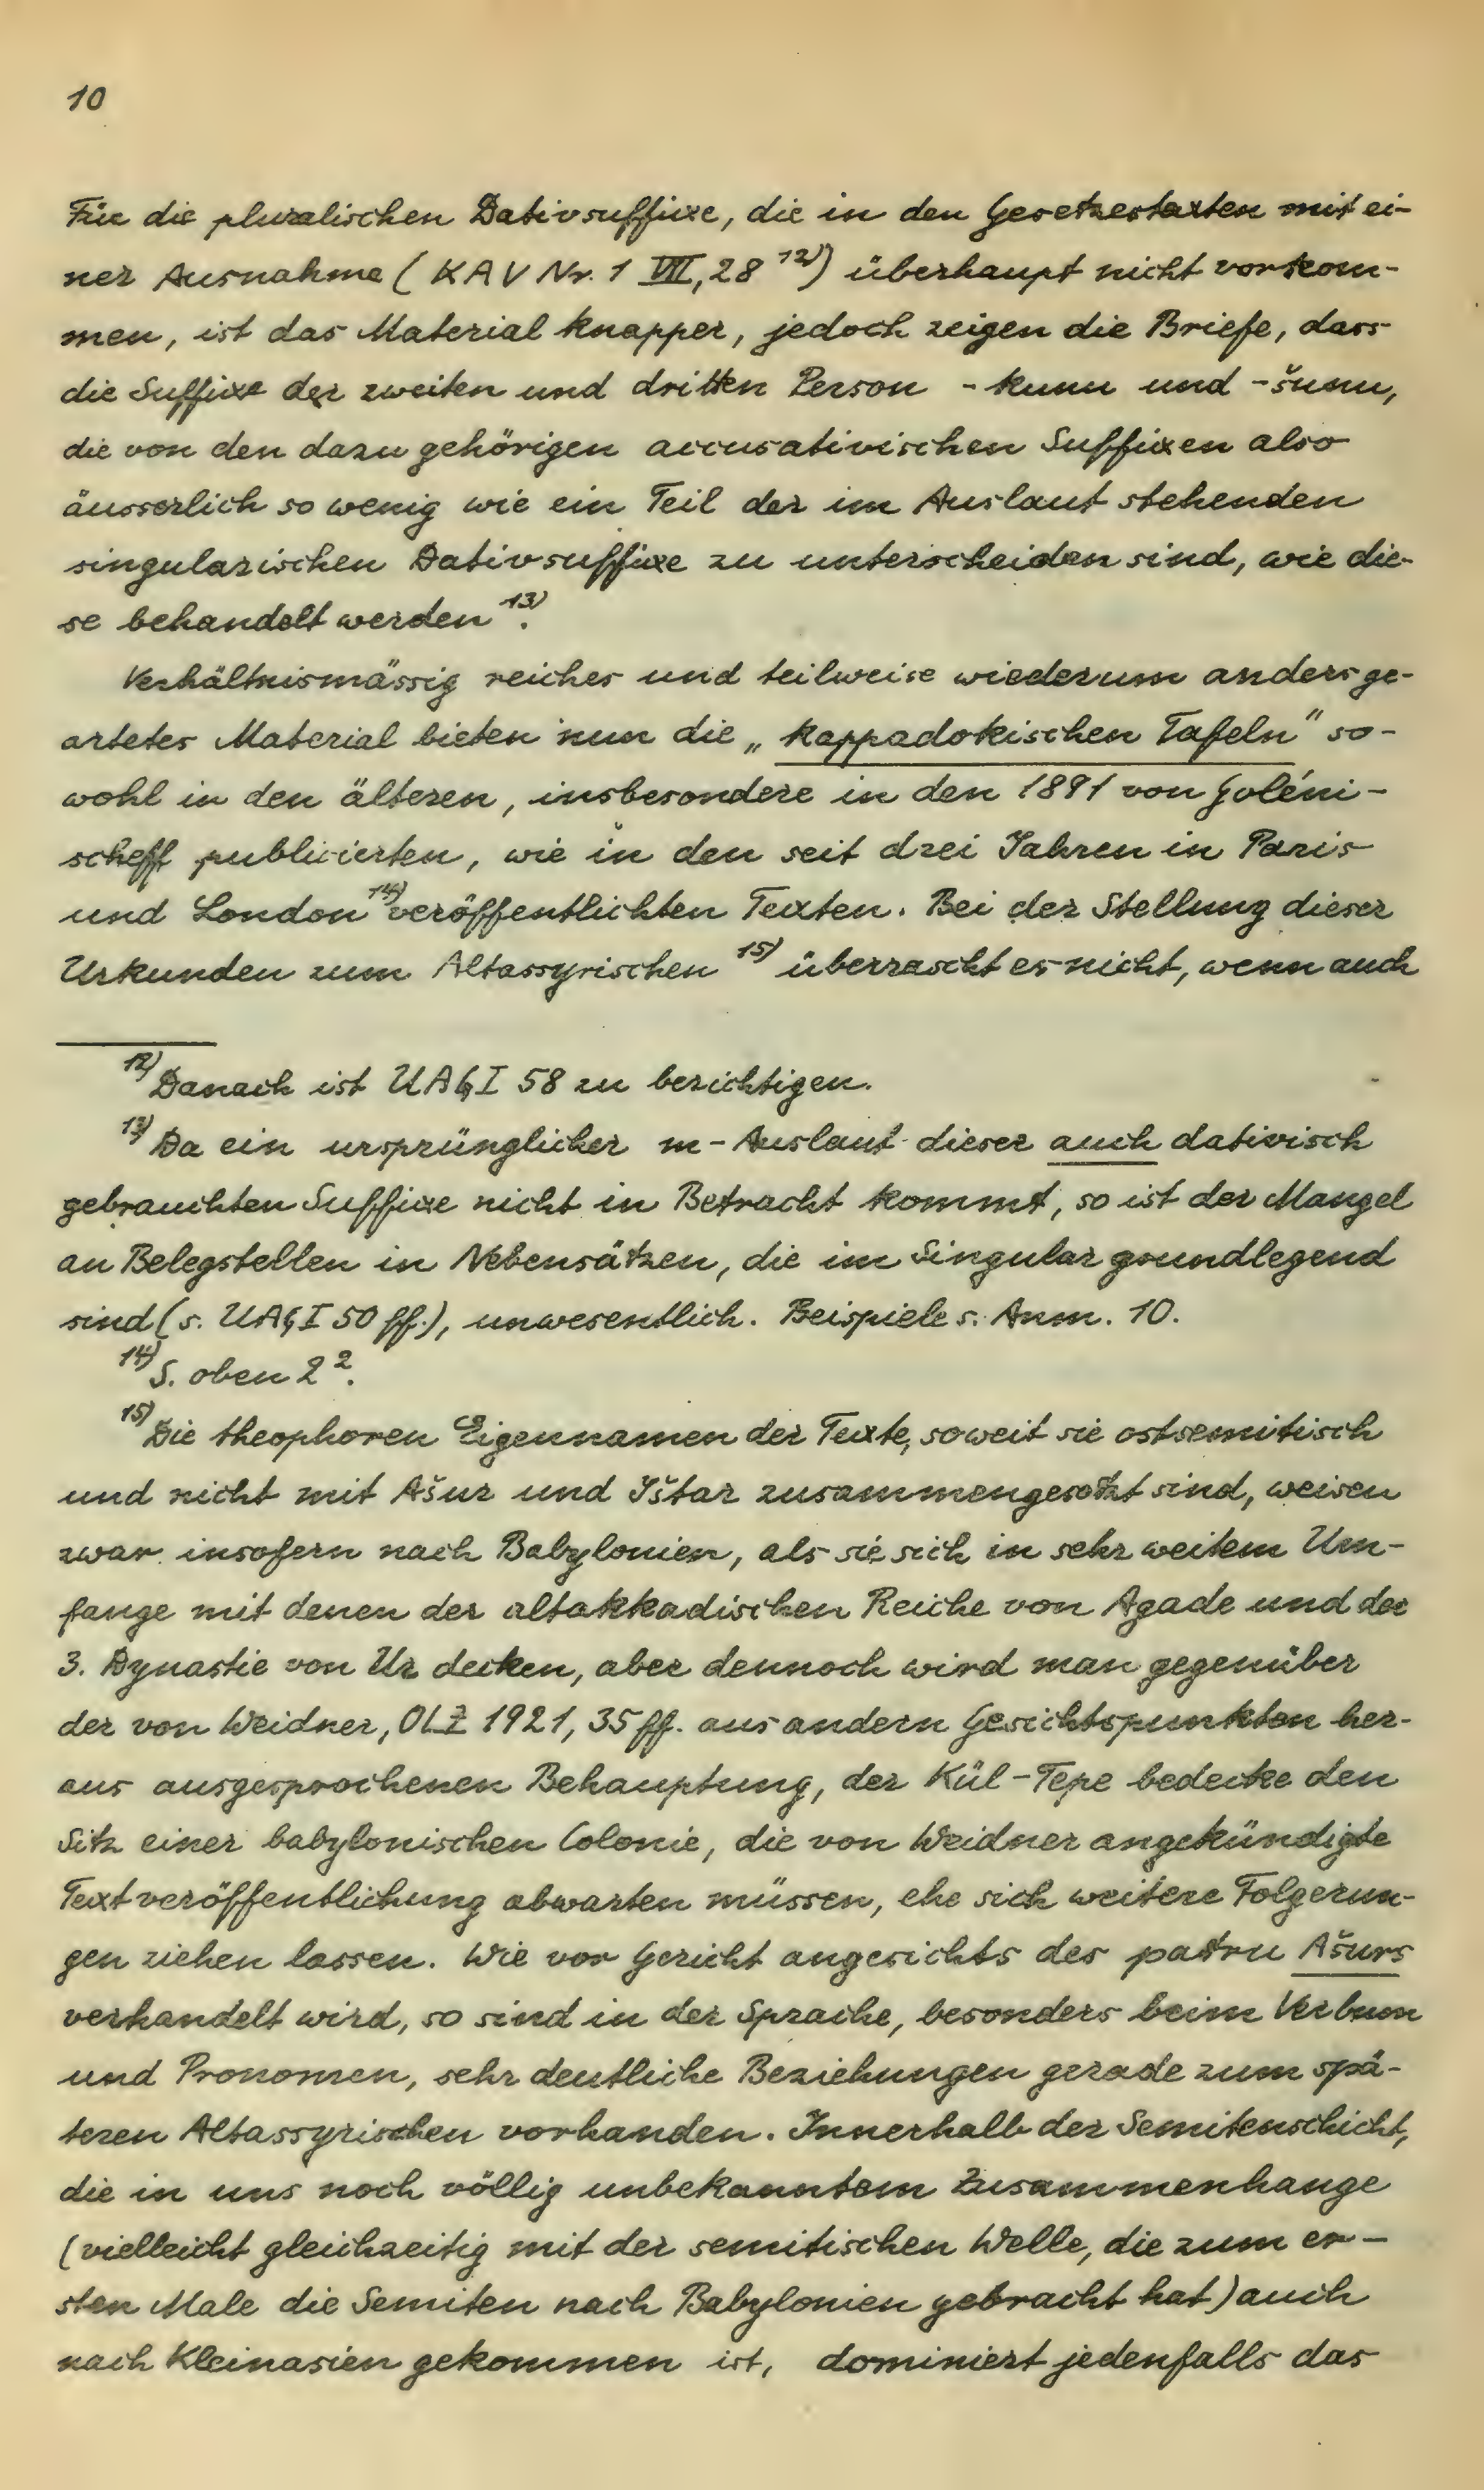 10
Für die pluralischen Dativsuffixe, die in den Gesetzestexten mit ei-
ner Ausnahme (KAV Nr. 1 VII, 28 ¹²⁾) überhaupt nicht vorkom-
men, ist das Material knapper, jedoch zeigen die Briefe, dass
die Suffixe der zweiten und dritten Person -kunu und -šunu,
die von den dazu gehörigen accusativischen Suffixen also
äusserlich so wenig wie ein Teil der im Auslaut stehenden
singularischen Dativsuffixe zu unterscheiden sind, wie die-
se behandelt werden ¹³⁾.
Verhältnismässig reiches und teilweise wiederum andersge-
artetes Material bieten nun die „kappadokischen Tafeln" so-
wohl in den älteren, insbesondere in den 1891 von Goléni-
scheff publicierten, wie in den seit drei Jahren in Paris
und London ¹⁴⁾ veröffentlichten Texten. Bei der Stellung dieser
Urkunden zum Altassyrischen ¹⁵⁾ überrascht es nicht, wenn auch
¹²⁾ Danach ist UAG I 58 zu berichtigen.
¹³⁾ Da ein ursprünglicher m-Auslaut dieser auch dativisch
gebrauchten Suffixe nicht in Betracht kommt, so ist der Mangel
an Belegstellen in Nebensätzen, die im Singular grundlegend
sind (s. UAG I 50 ff.), unwesentlich. Beispiele s. Anm. 10.
¹⁴⁾ S. oben 2².
¹⁵⁾ Die theophoren Eigennamen der Texte, soweit sie ostsemitisch
und nicht mit Ašur und Ištar zusammengesetzt sind, weisen
zwar insofern nach Babylonien, als sie sich in sehr weitem Um-
fange mit denen der altakkadischen Reiche von Agade und der
3. Dynastie von Ur decken, aber dennoch wird man gegenüber
der von Weidner, OLZ 1921, 35 ff. aus andern Gesichtspunkten her-
aus ausgesprochenen Behauptung, der Kül-Tepe bedecke den
Sitz einer babylonischen Colonie, die von Weidner angekündigte
Textveröffentlichung abwarten müssen, ehe sich weitere Folgerun-
gen ziehen lassen. Wie vor Gericht angesichts des patru Ašurs
verhandelt wird, so sind in der Sprache, besonders beim Verbum
und Pronomen, sehr deutliche Beziehungen gerade zum spä-
teren Altassyrischen vorhanden. Innerhalb der Semitenschicht,
die in uns noch völlig unbekanntem Zusammenhange
(vielleicht gleichzeitig mit der semitischen Welle, die zum er-
sten Male die Semiten nach Babylonien gebracht hat) auch
nach Kleinasien gekommen ist, dominiert jedenfalls das